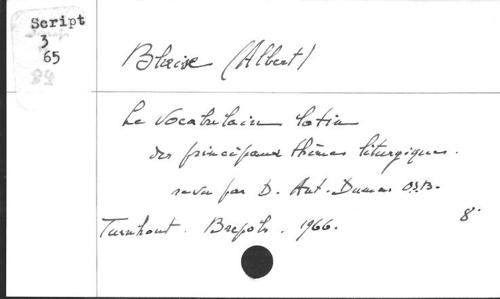 Script
3
65
Blaise (Albert)
Le Vocabulaire latin
des principaux thèmes liturgiques.
revu par D. Ant. Dumas O.S.B.
Turnhout. Brepols. 1966. 8°